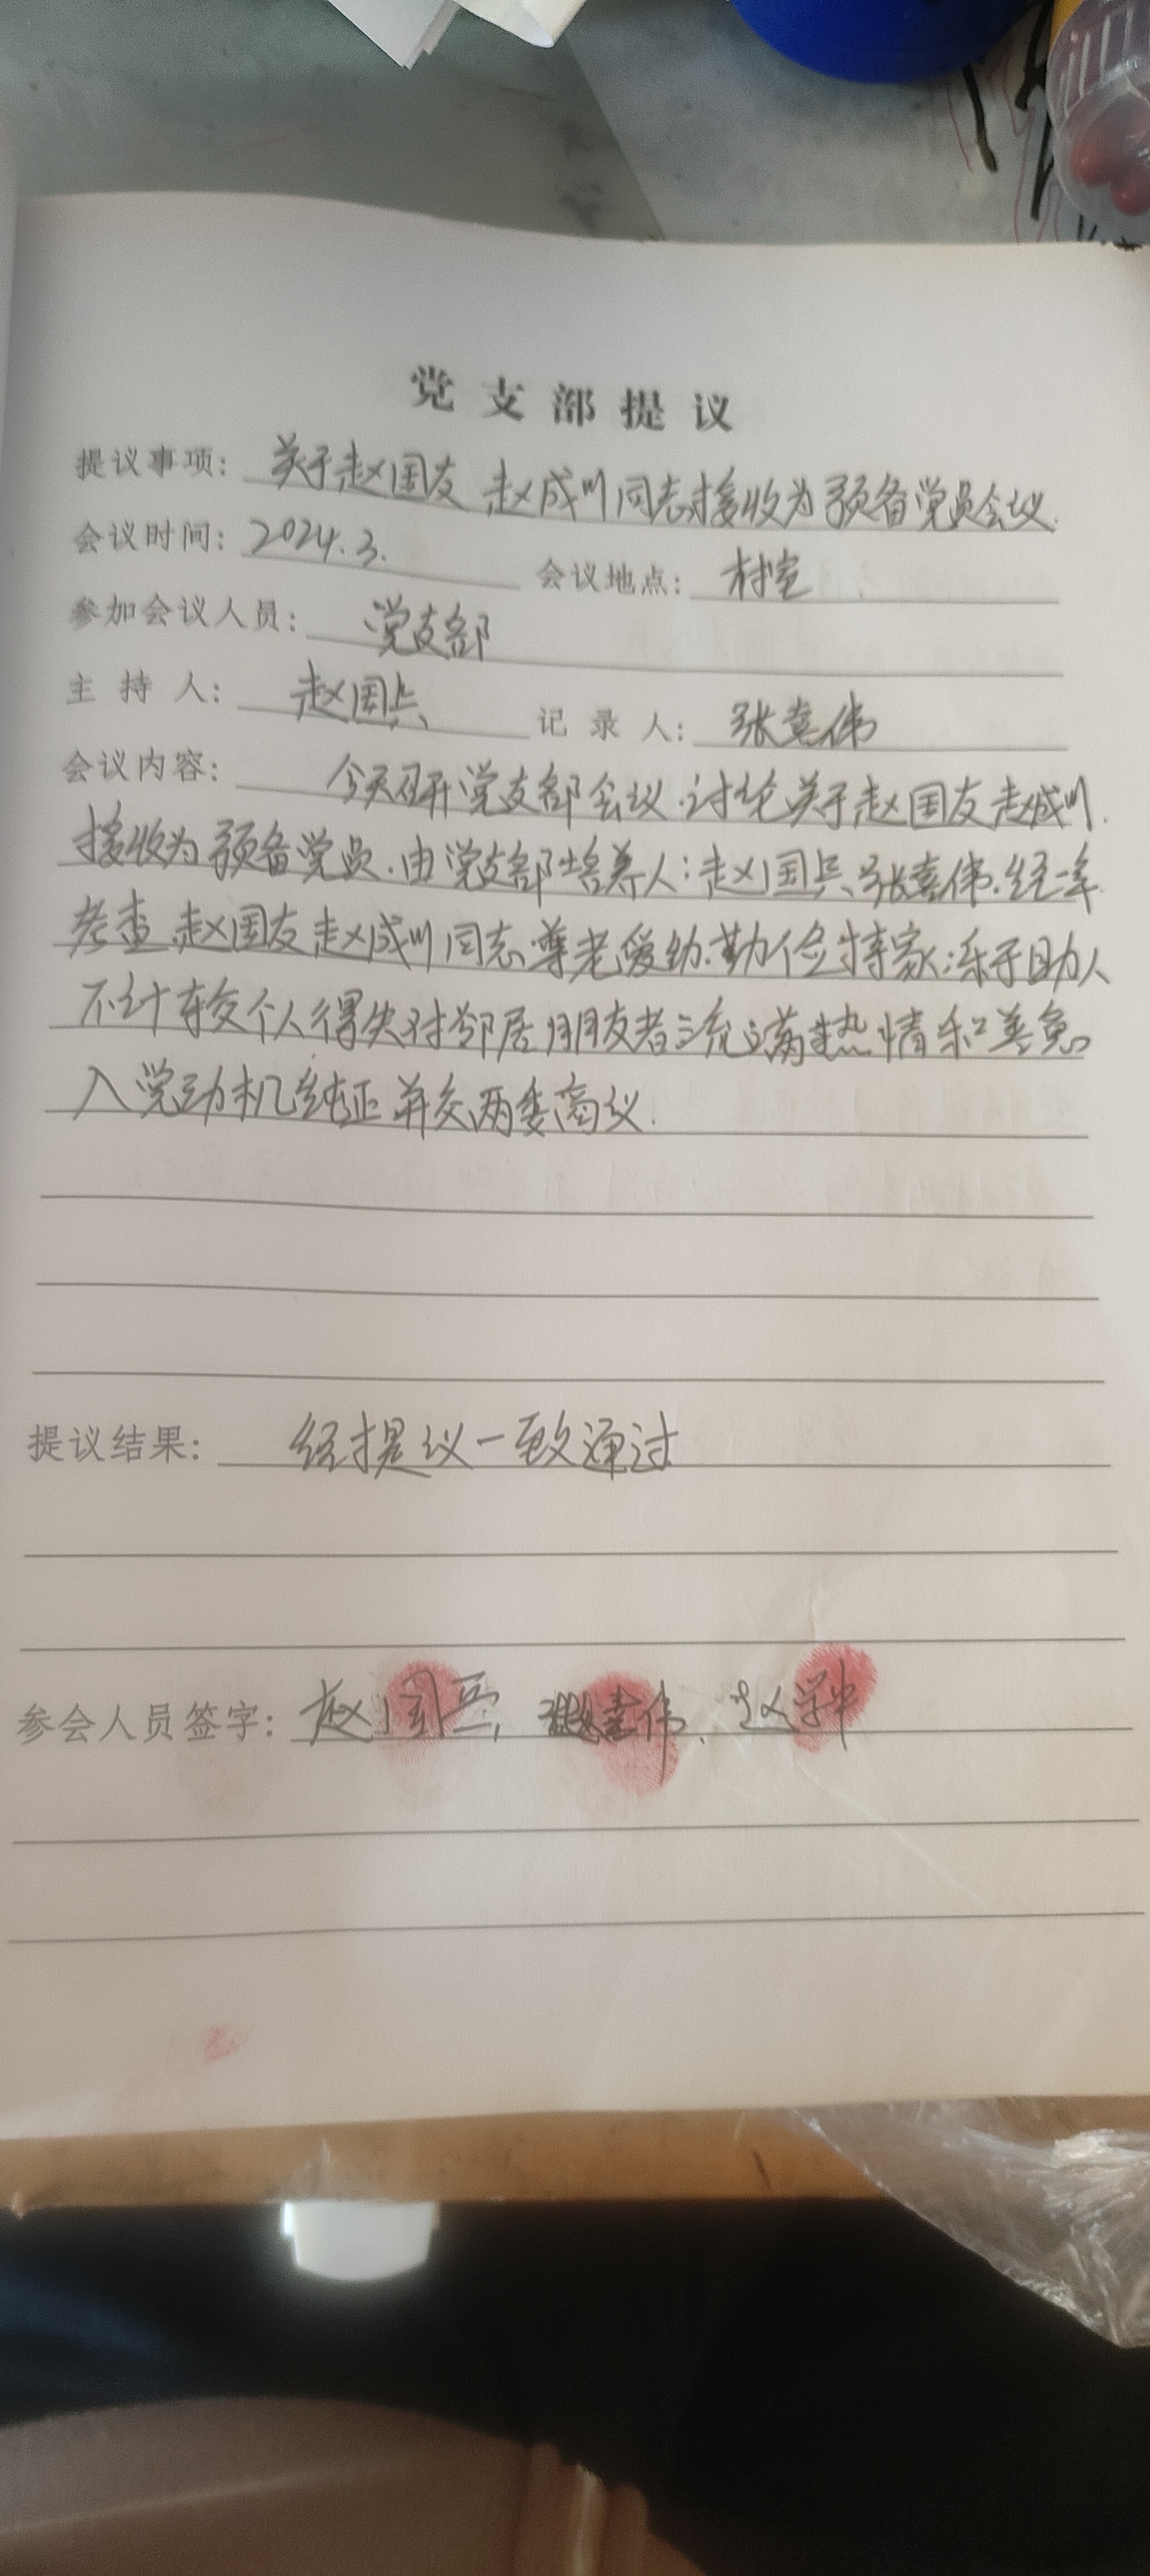 党支部提议
提议事项: 关于赵国友 赵成川同志接收为预备党员会议.
会议时间: 2024.3. 会议地点: 村室
参加会议人员: 党支部
主持人: 赵国兵 记录人: 张喜伟
会议内容: 今天召开党支部会议.讨论关于赵国友赵成川.
接收为预备党员.由党支部培养人:赵国兵、张喜伟.经一年
考查.赵国友赵成川同志.尊老爱幼.勤俭持家;乐于助人
不计较个人得失对邻居朋友者充满热情和善意
入党动机纯正并交两委商议.
提议结果: 经提议一致通过
参会人员签字: 赵国兵、张喜伟、赵学中